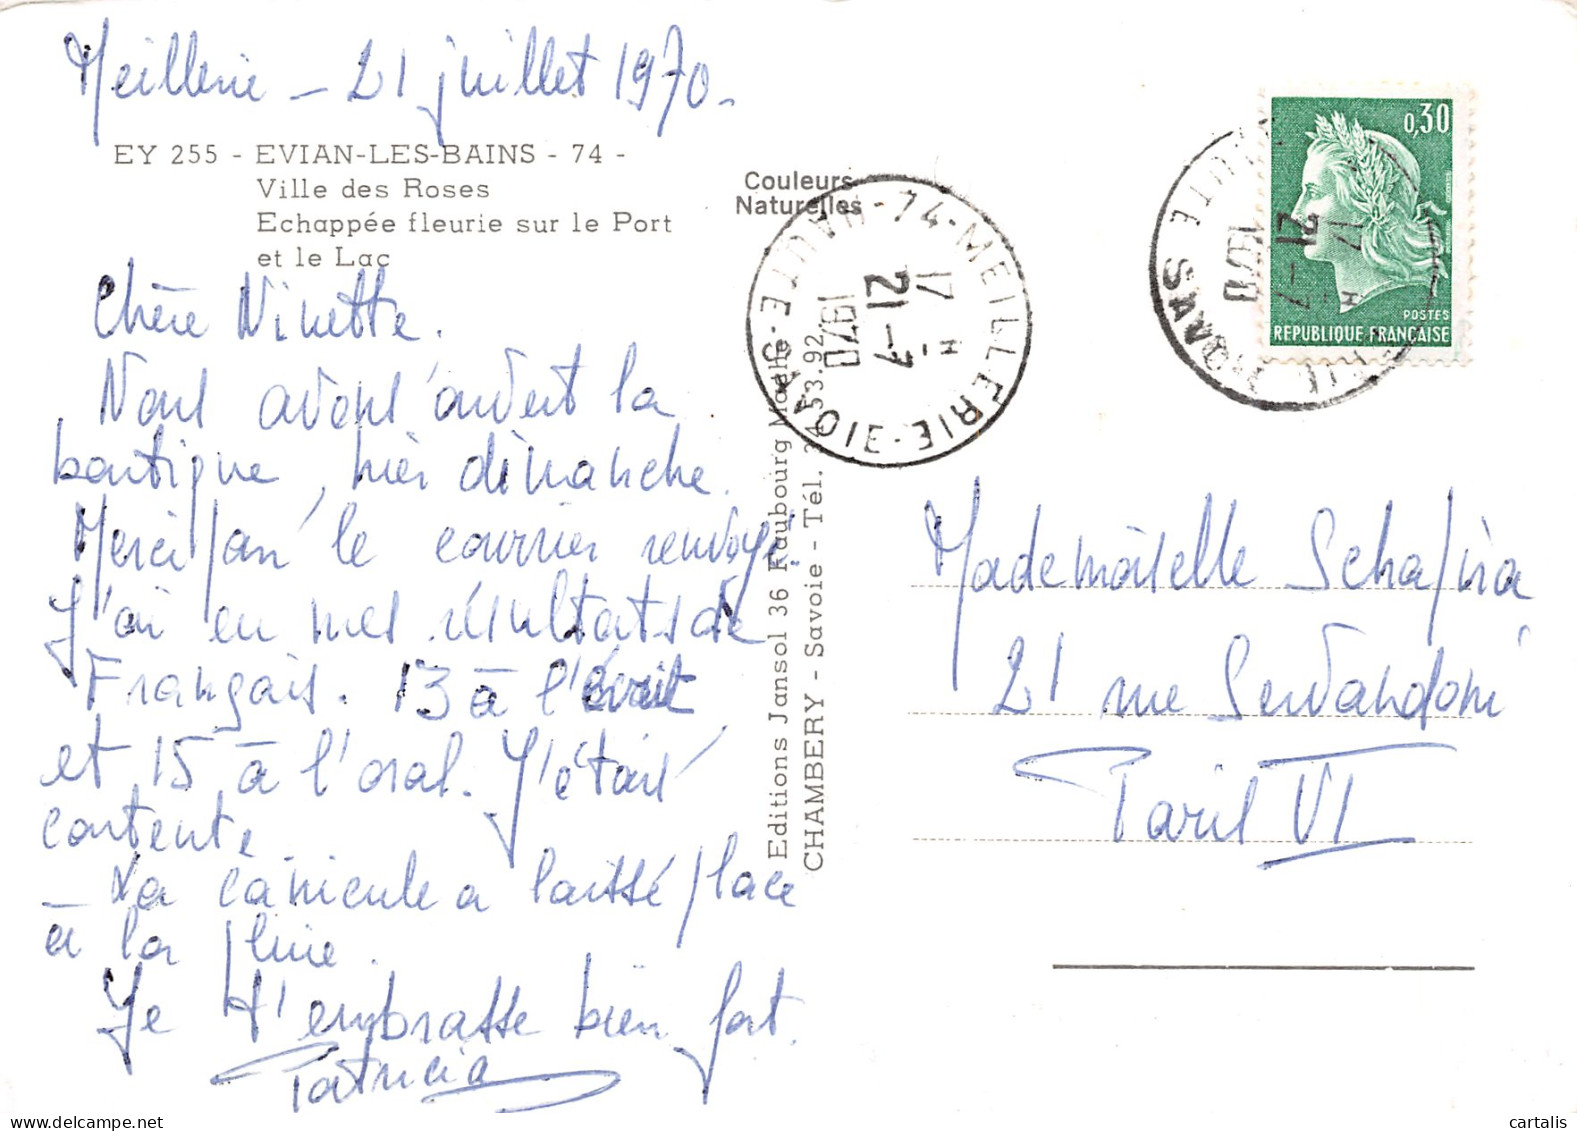 Meillerie - 21 juillet 1970.
EY 255 - EVIAN-LES-BAINS - 74 -
Ville des Roses
Echappée fleurie sur le Port
et le Lac
Chère Ninette.
Nous avons ouvert la
boutique, hier dimanche.
Merci pour le courrier renvoyé.
J'ai eu mes résultats de
Français. 13 à l'écrit
et 15 à l'oral. J'étais
contente
- La canicule a laissé place
à la pluie.
Je t'embrasse bien fort.
Patricia
Couleurs
Naturelles
Editions Jansol 36 Faubourg Maché
CHAMBERY - Savoie - Tél. 34.53.92
74-MEILLERIE-HAUTE-SAVOIE
17 H
21-7
1970
0,30
POSTES
REPUBLIQUE FRANÇAISE
HAUTE SAVOIE
17 H
21-7
1970
Mademoiselle Schapira
21 rue Servandoni
Paris VI
cartalis